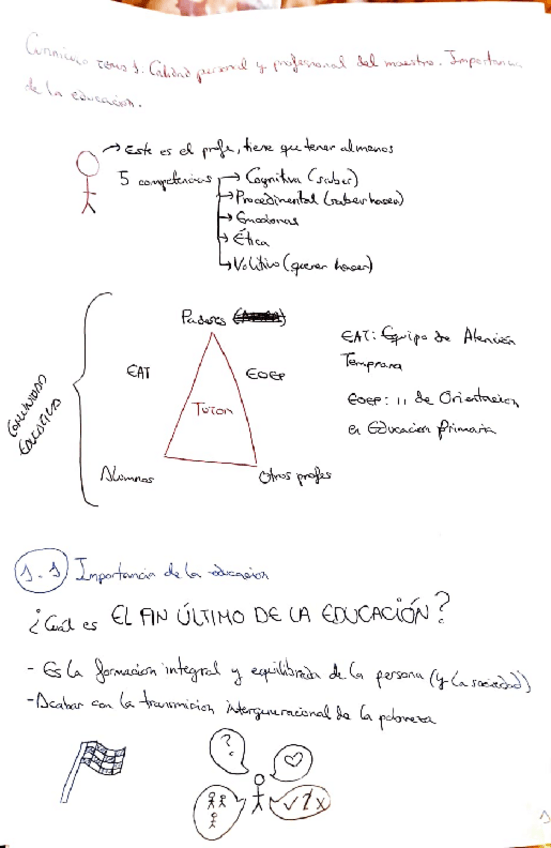 Comienzo tema 1. Calidad personal y profesional del maestro. Importancia
de la educación.
→ Este es el profe, tiene que tener almenos
5 competencias → Cognitiva (saber)
→ Procedimental (saber hacer)
→ Emocional
→ Ética
→ Volitivo (querer hacer)
Padres
EAT
EOEP
Tutor
Comunidad
Educativa
Alumnos
Otros profes
EAT: Equipo de Atención
Temprana
EOEP: 11 de Orientacion
en Educacion Primaria
1.1 Importancia de la educacion
¿Cuál es EL FIN ÚLTIMO DE LA EDUCACIÓN?
- Es la formacion integral y equilibrada de la persona (y la sociedad)
- Acabar con la transmicion intergeneracional de la pobreza
?
✓ ? X
1